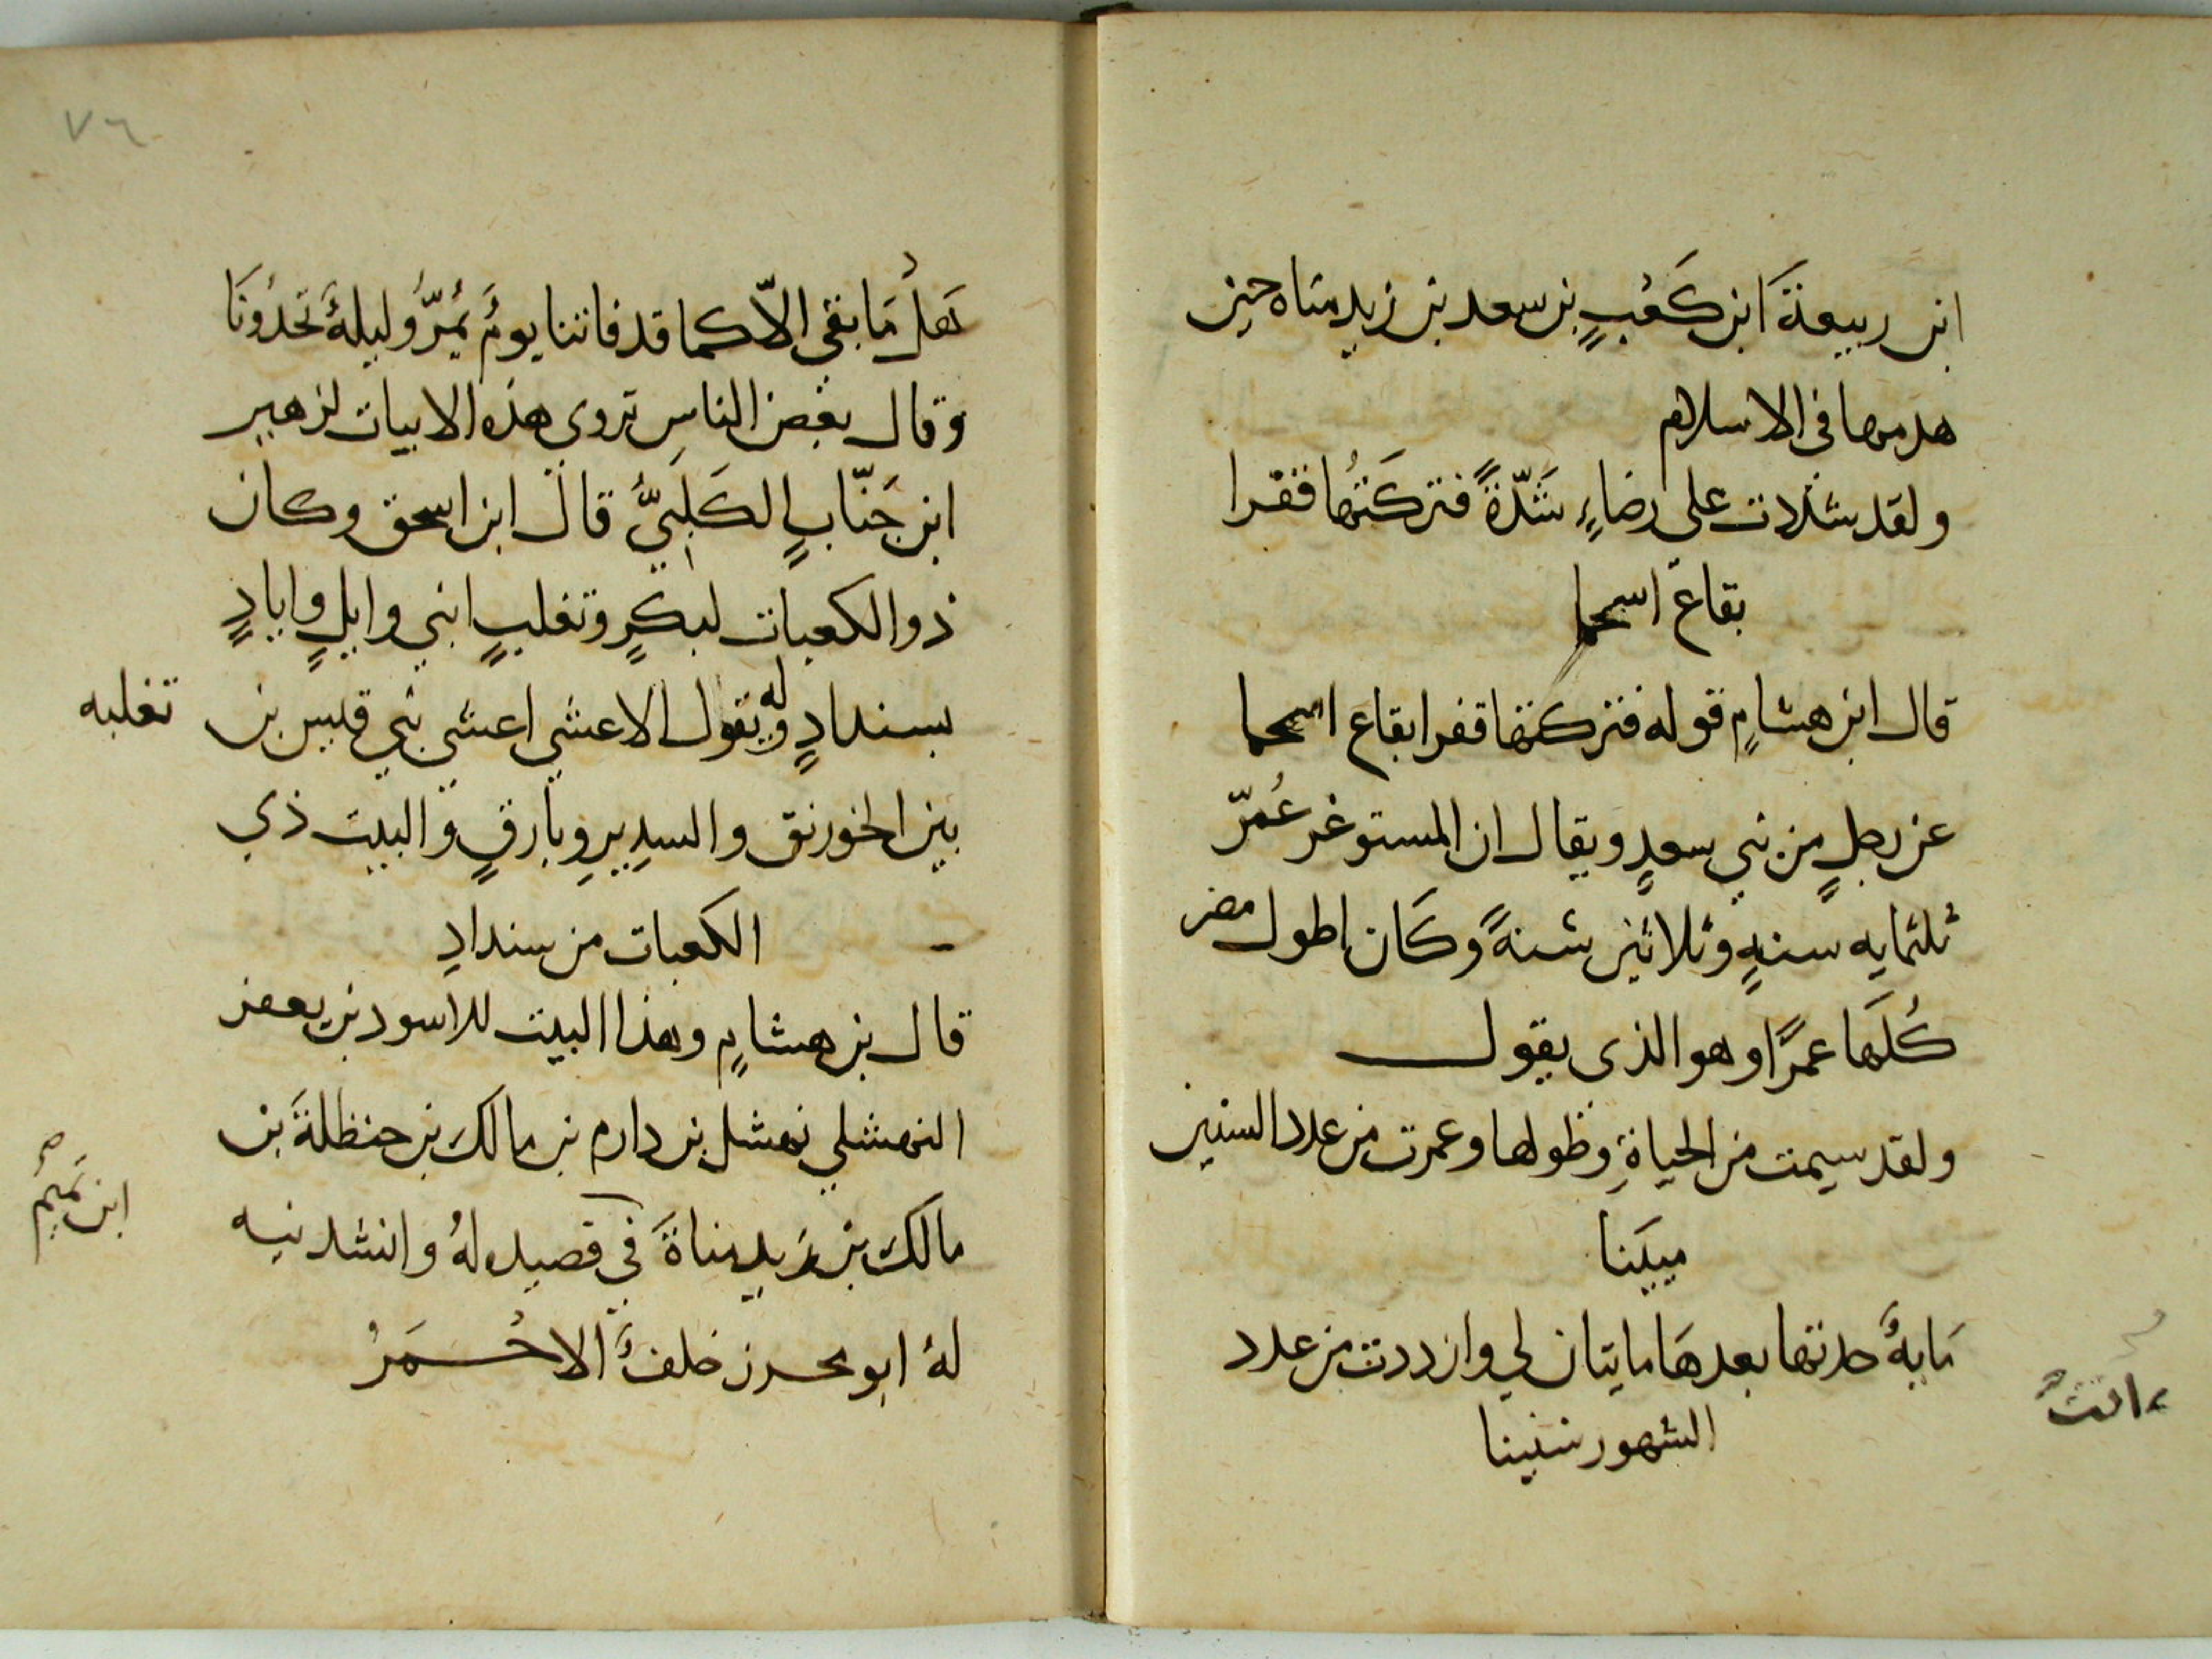 ابن ربيعةَ ابن كَعْبٍ بن سعد بن زيد مناه حين
هدمها فى الاسلام
ولقد شددت على رضاءٍ شَدّةً فتركتُها قفرا
بقاع اسحما
قال ابن هشامٍ قوله فتركتها قفرا بقاع اسحما
عن رجلٍ من بني سعدٍ ويقال ان المستوغر عُمّرَ
ثلثمايه سنةٍ وثلاثين سنةً وكَان اطول مضر
كُلّها عمرًا وهو الذى يقول
ولقد سيمت من الحياةِ وطولها وعمرت من عدد السنين
ميينا
مَايةٌ حدتها بعدهَا مايتان لي وازددت من عدد
الشهور سنينا
٧٦
هَلْ مَا بقي الاّ كما قد فاتنا يومٌ يَمُرُّ وليلةٌ تَحْدُونَا
وقال بعض الناسِ تروى هذه الابيات لزهير
ابن جَنّابٍ الكَلبيَّ قال ابن اسحق وكان
ذو الكعبات لبكرٍ وتغلبٍ ابني وايلٍ وايادٍ
بسندادٍ وله يقول الاعشي اعشي بني قيس بن ثعلبه
بين الخورنق والسديرِ وبارقٍ والبيت ذي
الكعبات من سندادِ
قال بن هشامٍ وهذا البيت للاسود بن يعفر
النهشلي نهشل بن دارم بن مالك بن حنظلةَ بن
مالك بن زيد مناةَ في قصيده لهُ وانشدنيه
ابن تميم
لهُ ابو محرز خلفٌ الاحْمَرُ